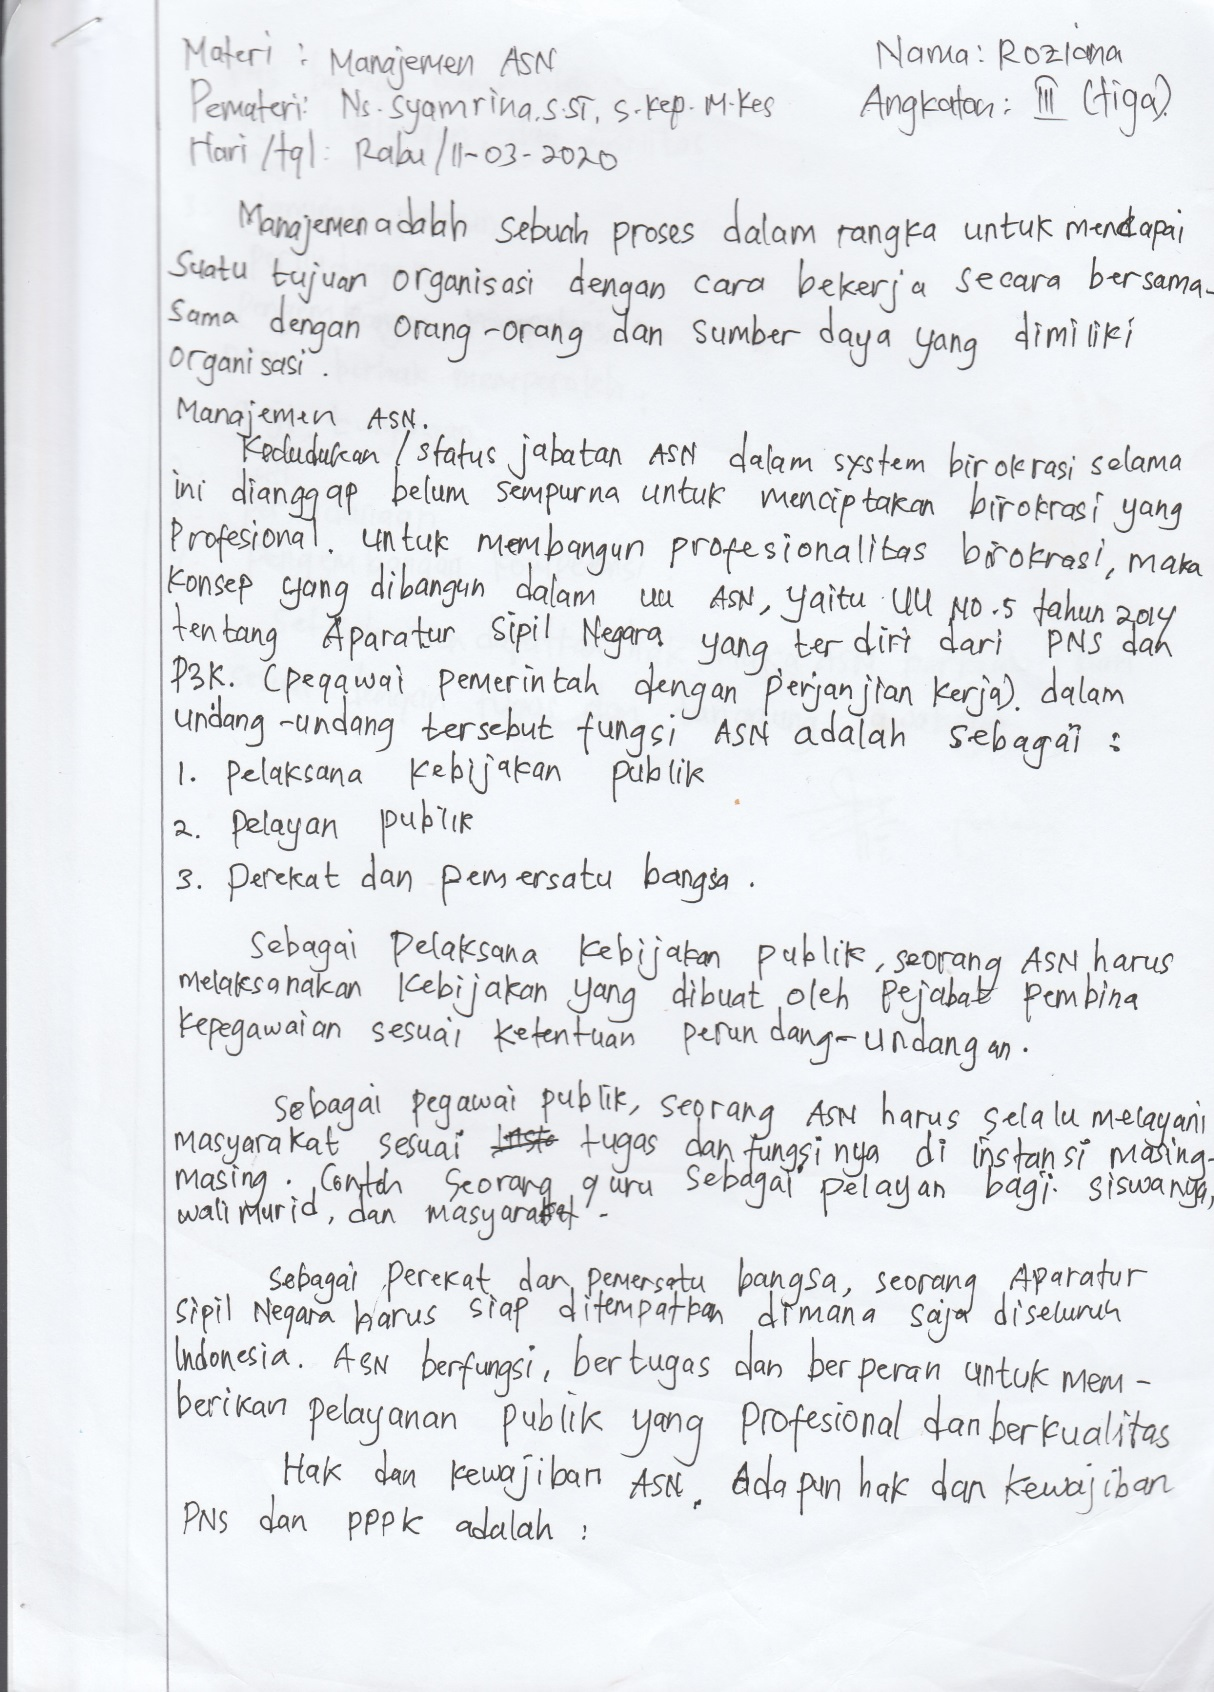 Materi : Manajemen ASN
Nama: Roziana
Pemateri: Ns. Syamrina, S.ST, S.Kep. M.Kes
Angkatan: III (tiga).
Hari/tgl: Rabu/11-03-2020
Manajemen adalah sebuah proses dalam rangka untuk mencapai
suatu tujuan organisasi dengan cara bekerja secara bersama-
sama dengan orang-orang dan sumber daya yang dimiliki
organisasi.
Manajemen ASN.
Kedudukan / status jabatan ASN dalam system birokrasi selama
ini dianggap belum sempurna untuk menciptakan birokrasi yang
Profesional. untuk membangun profesionalitas birokrasi, maka
Konsep yang dibangun dalam uu ASN, yaitu UU NO.5 tahun 2014
tentang Aparatur Sipil Negara yang terdiri dari PNS dan
P3K. (pegawai pemerintah dengan perjanjian kerja). dalam
undang-undang tersebut fungsi ASN adalah sebagai :
1. pelaksana kebijakan publik
2. pelayan publik
3. perekat dan pemersatu bangsa.
Sebagai Pelaksana kebijakan publik, seorang ASN harus
melaksanakan kebijakan yang dibuat oleh pejabat pembina
kepegawaian sesuai ketentuan perundang-undangan.
Sebagai pegawai publik, seorang ASN harus selalu melayani
masyarakat sesuai tugas dan fungsinya di instansi masing-
masing. Contoh seorang guru sebagai pelayan bagi siswanya,
wali murid, dan masyarakat.
Sebagai perekat dan pemersatu bangsa, seorang Aparatur
Sipil Negara harus siap ditempatkan dimana saja diseluruh
Indonesia. ASN berfungsi, bertugas dan berperan untuk mem-
berikan pelayanan publik yang profesional dan berkualitas
Hak dan kewajiban ASN. Adapun hak dan kewajiban
PNS dan PPPK adalah :